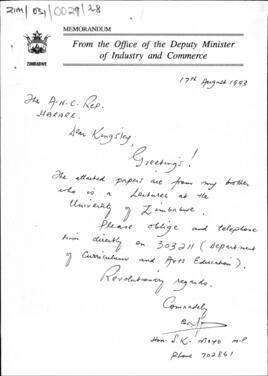 ZIM/031/0029/28
MEMORANDUM
From the Office of the Deputy Minister
of Industry and Commerce
ZIMBABWE
17th August 1993
The A.N.C Rep.
HARARE
Dear Kingsley,
Greetings!
The attached papers are from my brother
who is a Lecturer at the
University of Zimbabwe.
Please oblige and telephone
him directly on 303211 (Department
of Curriculum and Arts Education).
Revolutionary regards.
Comradely
Hon. S.K. Moyo M.P
Phone 702861